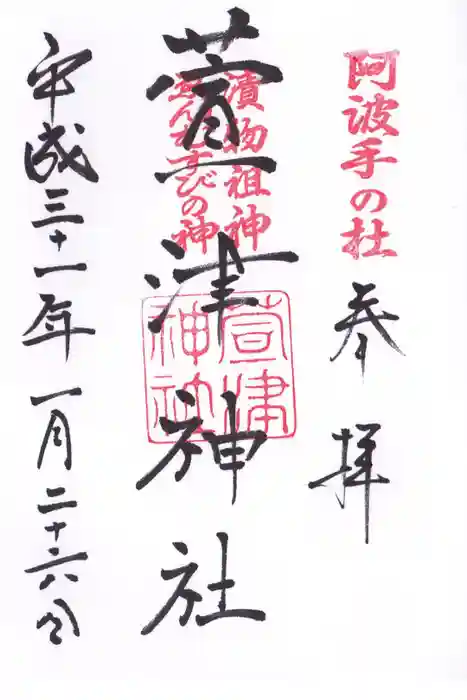 阿波手の杜
参拝
漬物祖神
ゑんむすびの神
萱津神社
萱津神社
平成三十一年一月二十六日